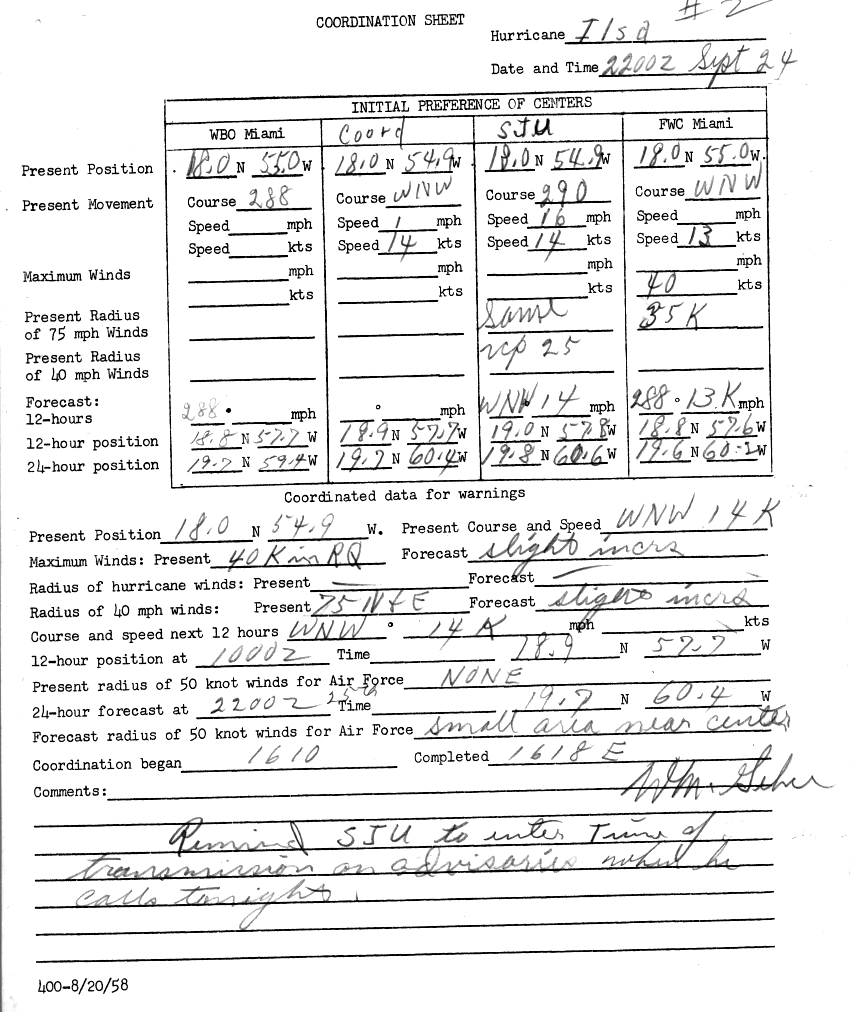 # 2
COORDINATION SHEET
Hurricane Ilsa
Date and Time 2200Z Sept 24
INITIAL PREFERENCE OF CENTERS
WBO Miami Coord SJU FWC Miami
Present Position 18.0 N 55.0 W 18.0 N 54.9 W 18.0 N 54.9 W 18.0 N 55.0 W.
Present Movement Course 288 Course WNW Course 290 Course WNW
Speed mph Speed 1 mph Speed 16 mph Speed mph
Speed kts Speed 14 kts Speed 14 kts Speed 13 kts
Maximum Winds mph mph mph mph
kts kts kts 40 kts
Present Radius
of 75 mph Winds Same 35 K
Present Radius
of 40 mph Winds rcp 25
Forecast:
12-hours 288 ° mph ° mph WNW 14 mph 288 ° 13 K mph
12-hour position 18.8 N 57.7 W 18.9 N 57.7 W 19.0 N 57.8 W 18.8 N 57.6 W
24-hour position 19.7 N 59.4 W 19.7 N 60.4 W 19.8 N 60.6 W 19.6 N 60.2 W
Coordinated data for warnings
Present Position 18.0 N 54.9 W. Present Course and Speed WNW 14 K
Maximum Winds: Present 40 K in RQ Forecast slight incrs
Radius of hurricane winds: Present — Forecast —
Radius of 40 mph winds: Present 75 N & E Forecast slight incrs
Course and speed next 12 hours WNW ° 14 K mph kts
12-hour position at 1000Z Time 18.9 N 57.7 W
Present radius of 50 knot winds for Air Force NONE
24-hour forecast at 2200Z 25th Time 19.7 N 60.4 W
Forecast radius of 50 knot winds for Air Force small area near center
Coordination began 1610 Completed 1618 E
Comments:
Remind SJU to enter Time of
transmission on advisories when he
calls tonight.
400-8/20/58